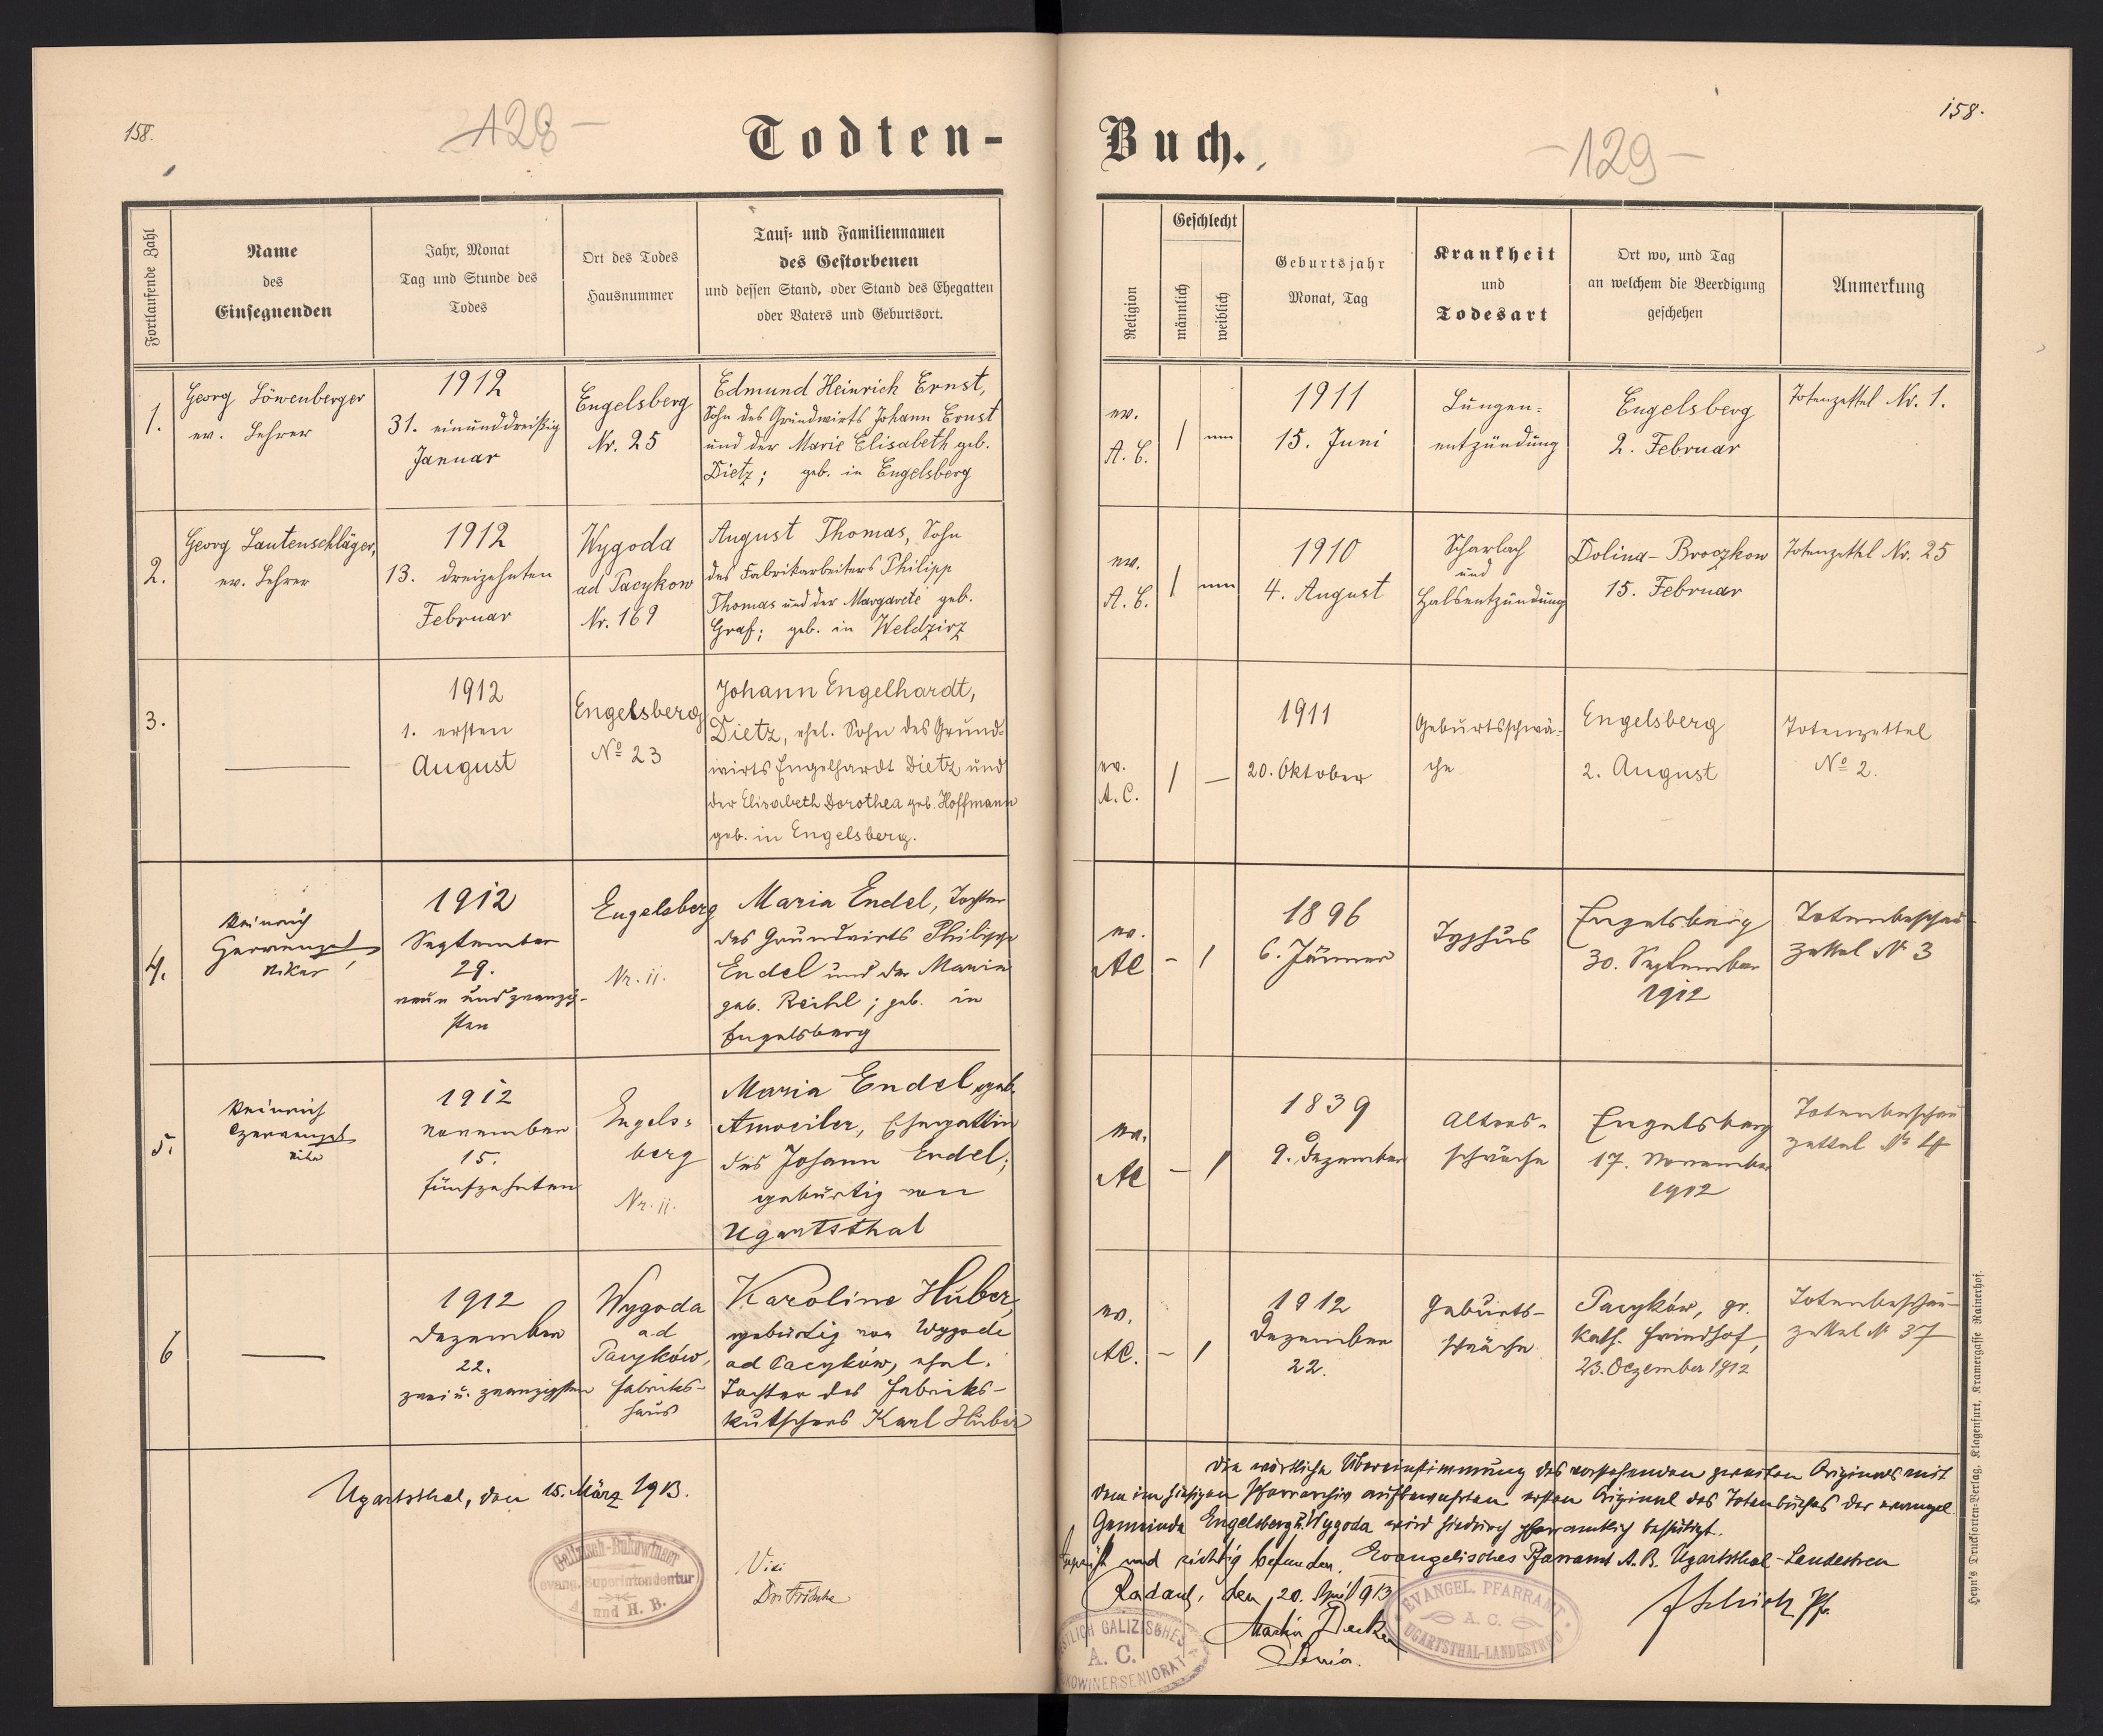 158.
128 -
Todten-
Fortlaufende Zahl
Name
des
Einsegnenden
Jahr, Monat
Tag und Stunde des
Todes
Ort des Todes
Hausnummer
Tauf- und Familiennamen
des Gestorbenen
und dessen Stand, oder Stand des Ehegatten
oder Vaters und Geburtsort.
1.
Georg Löwenberger
ev. Lehrer
1912
31. einunddreißig
Januar
Engelsberg
Nr. 25
Edmund Heinrich Ernst,
Sohn des Grundwirts Johann Ernst
und der Marie Elisabeth geb.
Dietz; geb. in Engelsberg
2.
Georg Lautenschläger,
ev. Lehrer
1912
13. dreizehnten
Februar
Wygoda
ad Pacykow
Nr. 169
August Thomas, Sohn
des Fabrikarbeiters Philipp
Thomas und der Margarete geb.
Graf; geb. in Weldzirz
3.
1912
1. ersten
August
Engelsberg
No 23
Johann Engelhardt,
Dietz, ehel. Sohn des Grund-
wirts Engelhardt Dietz und
der Elisabeth Dorothea geb. Hoffmann
geb. in Engelsberg.
4.
Heinrich
Vikar
1912
September
29.
neun und zwanzig-
sten
Engelsberg
Nr. 11.
Maria Endel, Tochter
des Grundwirts Philipp
Endel und der Maria
geb. Reichl; geb. in
Engelsberg
5.
Heinrich
1912
November
15.
fünfzehnten
Engels-
berg
Nr. 11.
Maria Endel geb.
Amweiler, Ehegattin
des Johann Endel;
gebürtig von
Ugartsthal
6
1912
Dezember
22.
zwei u. zwanzigsten
Wygoda
ad
Pacyków,
Fabriks-
haus
Karoline Huber,
gebürtig von Wygoda
ad Pacyków, ehel.
Tochter des Fabriks-
kutschers Karl Huber
Ugartsthal, den 15. März 1913.
Galizisch-Bukowinaer
evang. Superintendentur
A. und H. B.
Vidi
158.
- 129 -
Buch.
Religion
Geschlecht
männlich
weiblich
Geburtsjahr
Monat, Tag
Krankheit
und
Todesart
Ort wo, und Tag
an welchem die Beerdigung
geschehen
Anmerkung
ev.
A. C.
1
1911
15. Juni
Lungen-
entzündung
Engelsberg
2. Februar
Totenzettel Nr. 1.
ev.
A. C.
1
1910
4. August
Scharlach
und
Halsentzündung
Dolina-Broczkow
15. Februar
Totenzettel Nr. 25
ev.
A. C.
1 —
1911
20. Oktober
Geburtsschwä-
che
Engelsberg
2. August
Totenzettel
No 2.
ev.
AC
- 1
1896
6. Jänner
Typhus
Engelsberg
30. September
1912
Totenbeschau-
zettel No 3
ev.
AC
- 1
1839
9. Dezember
Alters-
schwäche
Engelsberg
17. November
1912
Totenbeschau
zettel No 4
ev.
AC.
- 1
1912
Dezember
22.
Geburts-
schwäche
Pacyków, gr.
kath. Friedhof,
23. Dezember 1912
Totenbeschau-
zettel No 37
Die wörtliche Übereinstimmung des vorstehenden zweiten Originals mit
dem im hiesigen Pfarrarchiv aufbewahrten ersten Original des Totenbuches der evangel.
Gemeinde Engelsberg u. Wygoda wird hiedurch pfarramtlich bestätigt.
Geprüft und richtig befunden. Evangelisches Pfarramt A. B. Ugartsthal-Landestreu
Radautz, den 20. April 913
Martin Decker
Senior.
Pfr.
EVANGEL. PFARRAMT
A. C.
UGARTSTHAL-LANDESTREU
GALIZISCHES
A. C.
BUKOWINERSENIORAT
Heyn's Drucksorten-Verlag, Klagenfurt, Kramergasse Rainerhof.